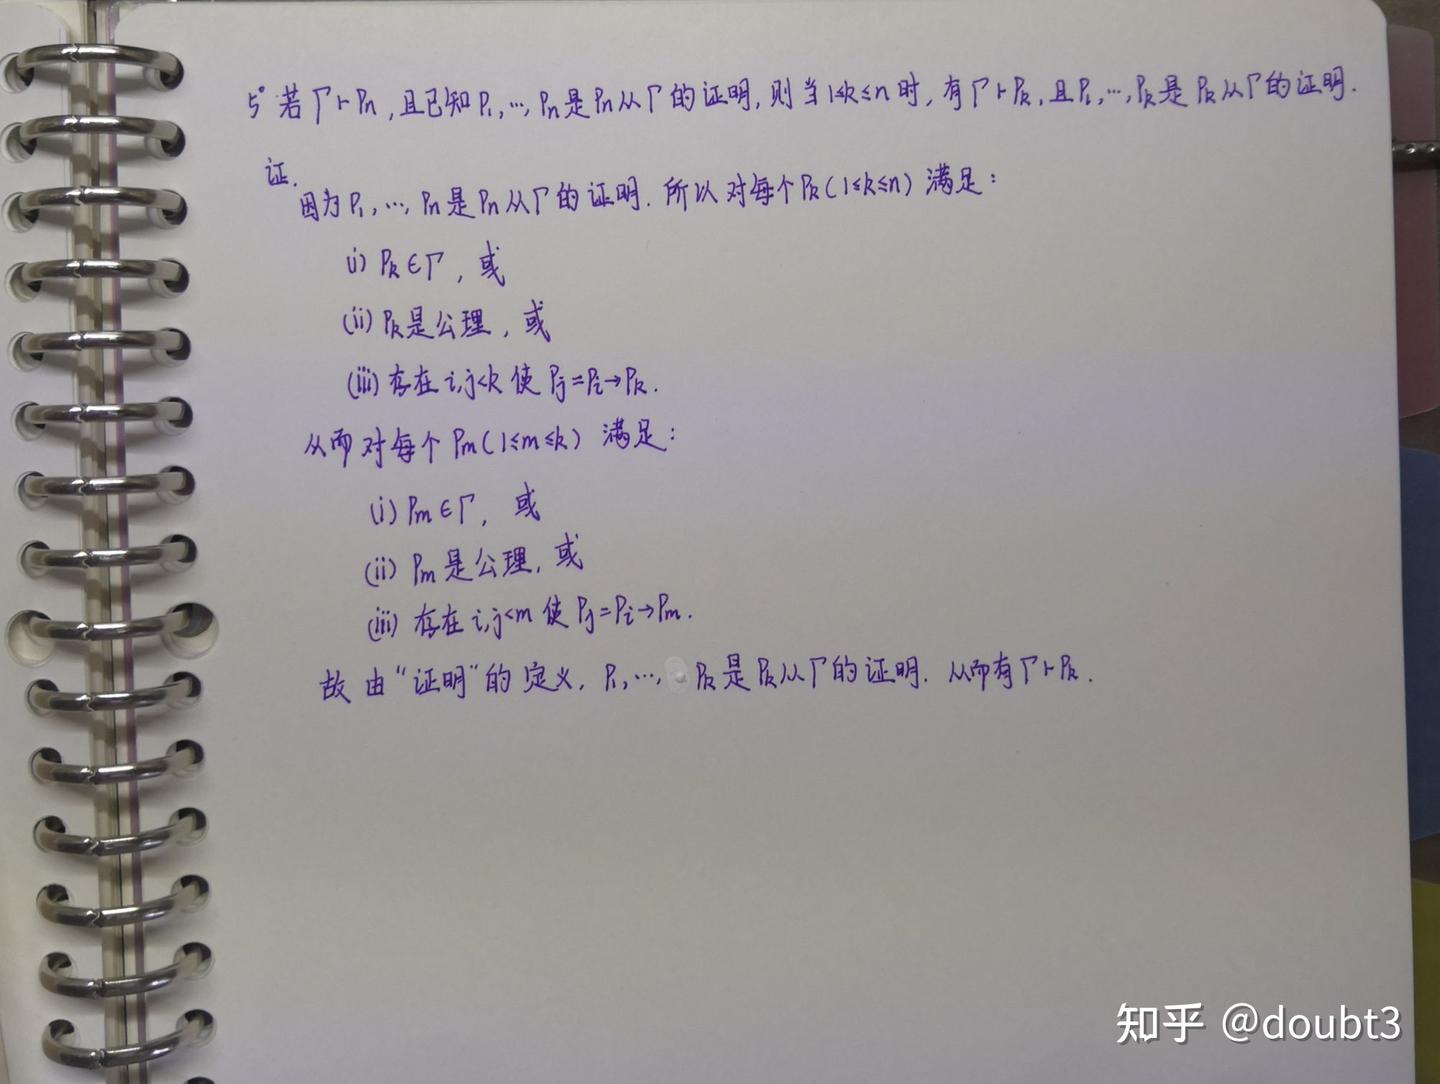 5° 若Γ⊢Pn，且已知P1,…,Pn是Pn从Γ的证明，则当1≤k≤n时，有Γ⊢Pk，且P1,…,Pk是Pk从Γ的证明.
证.
因为P1,…,Pn是Pn从Γ的证明.所以对每个Pk(1≤k≤n)满足：
(i) Pk∈Γ，或
(ii) Pk是公理，或
(iii) 存在i,j<k使Pj=Pi→Pk.
从而对每个Pm(1≤m≤k)满足：
(i) Pm∈Γ，或
(ii) Pm是公理，或
(iii) 存在i,j<m使Pj=Pi→Pm.
故由“证明”的定义，P1,…,Pk是Pk从Γ的证明.从而有Γ⊢Pk.
知乎 @doubt3